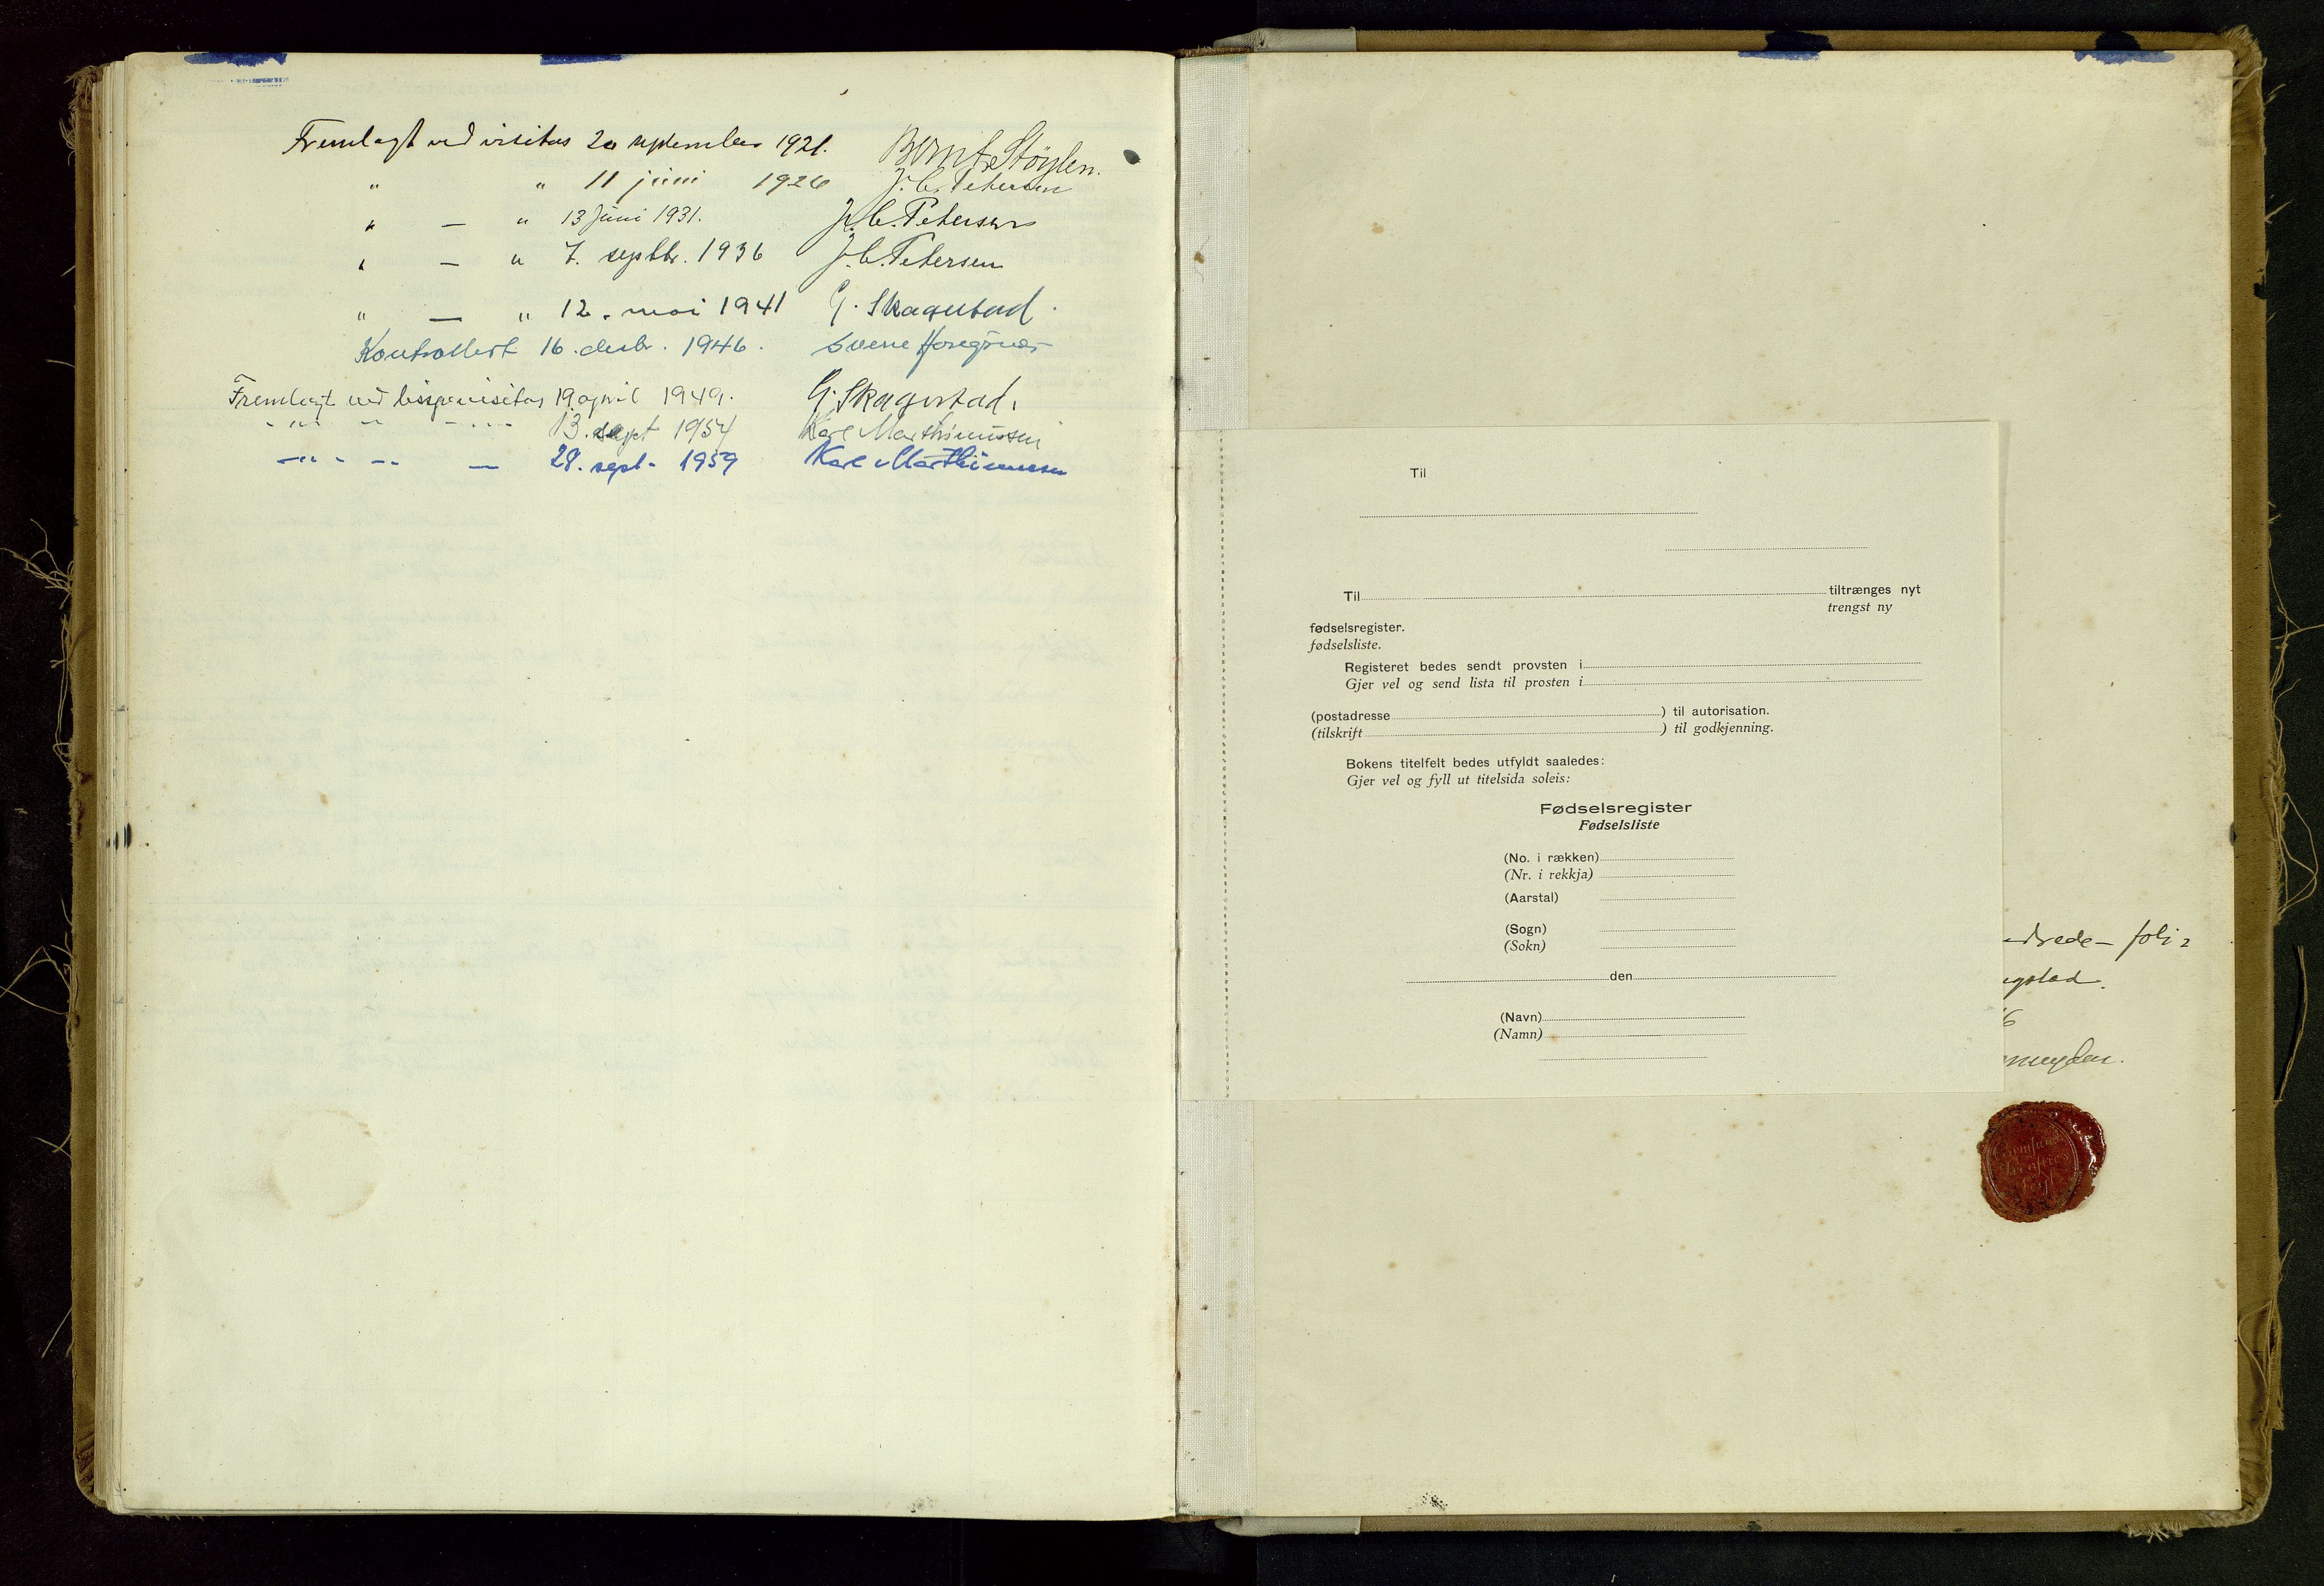 Fremlagt ved visitas 20 september 1921. Bernt Støylen.
" " 11 juni 1926 J. C. Petersen
" — " 13 juni 1931. J. C. Petersen
" — " 7. septbr. 1936 J. C. Petersen
" — " 12. mai 1941 G. Skagestad.
Kontrollert 16. desbr. 1946.
Fremlagt ved bispevisitas 19 april 1949. G. Skagestad.
13. sept 1954 Karl Marthinussen
28. sept. 1959 Karl Marthinussen
Til
Til tiltrænges nyt
trengst ny
fødselsregister.
fødselsliste.
Registeret bedes sendt provsten i
Gjer vel og send lista til prosten i
(postadresse ) til autorisation.
(tilskrift ) til godkjenning.
Bokens titelfelt bedes utfyldt saaledes:
Gjer vel og fyll ut titelsida soleis:
Fødselsregister
Fødselsliste
(No. i rækken)
(Nr. i rekkja)
(Aarstal)
(Sogn)
(Sokn)
den
(Navn)
(Namn)